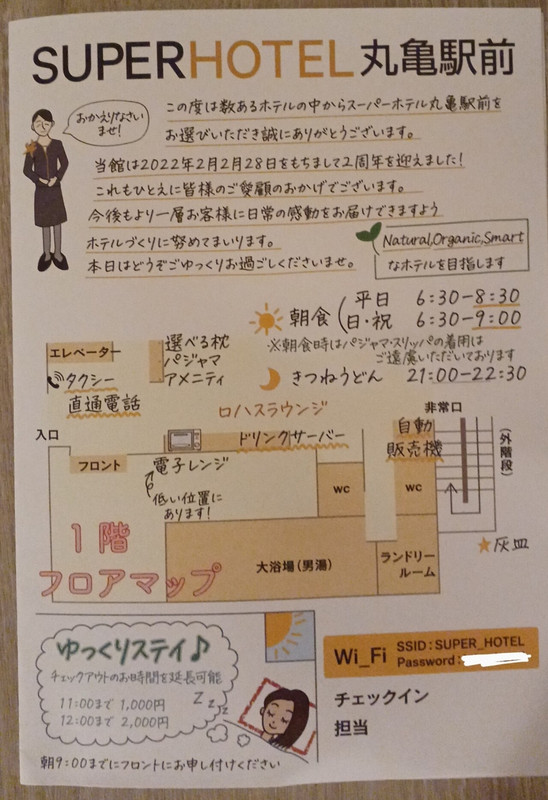 SUPERHOTEL 丸亀駅前
おかえりなさい
ませ!
この度は数あるホテルの中からスーパーホテル丸亀駅前を
お選びいただき誠にありがとうございます。
当館は2022年2月28日をもちまして2周年を迎えました!
これもひとえに皆様のご愛顧のおかげでございます。
今後もより一層お客様に日常の感動をお届けできますよう
ホテルづくりに努めてまいります。
本日はどうぞごゆっくりお過ごしくださいませ。
Natural,Organic,Smart
なホテルを目指します
朝食
平日 6:30-8:30
日・祝 6:30-9:00
※朝食時はパジャマ・スリッパの着用は
ご遠慮いただいております
きつねうどん 21:00-22:30
エレベーター
タクシー
直通電話
選べる枕
パジャマ
アメニティ
ロハスラウンジ
非常口
入口
フロント
ドリンクサーバー
自動
販売機
(外階段)
電子レンジ
低い位置に
あります!
WC
WC
灰皿
1階
フロアマップ
大浴場(男湯)
ランドリー
ルーム
ゆっくりステイ♪
チェックアウトのお時間を延長可能
11:00まで 1,000円
12:00まで 2,000円
Z Z Z
朝9:00までにフロントにお申し付けください
Wi_Fi
SSID:SUPER_HOTEL
Password:
チェックイン
担当